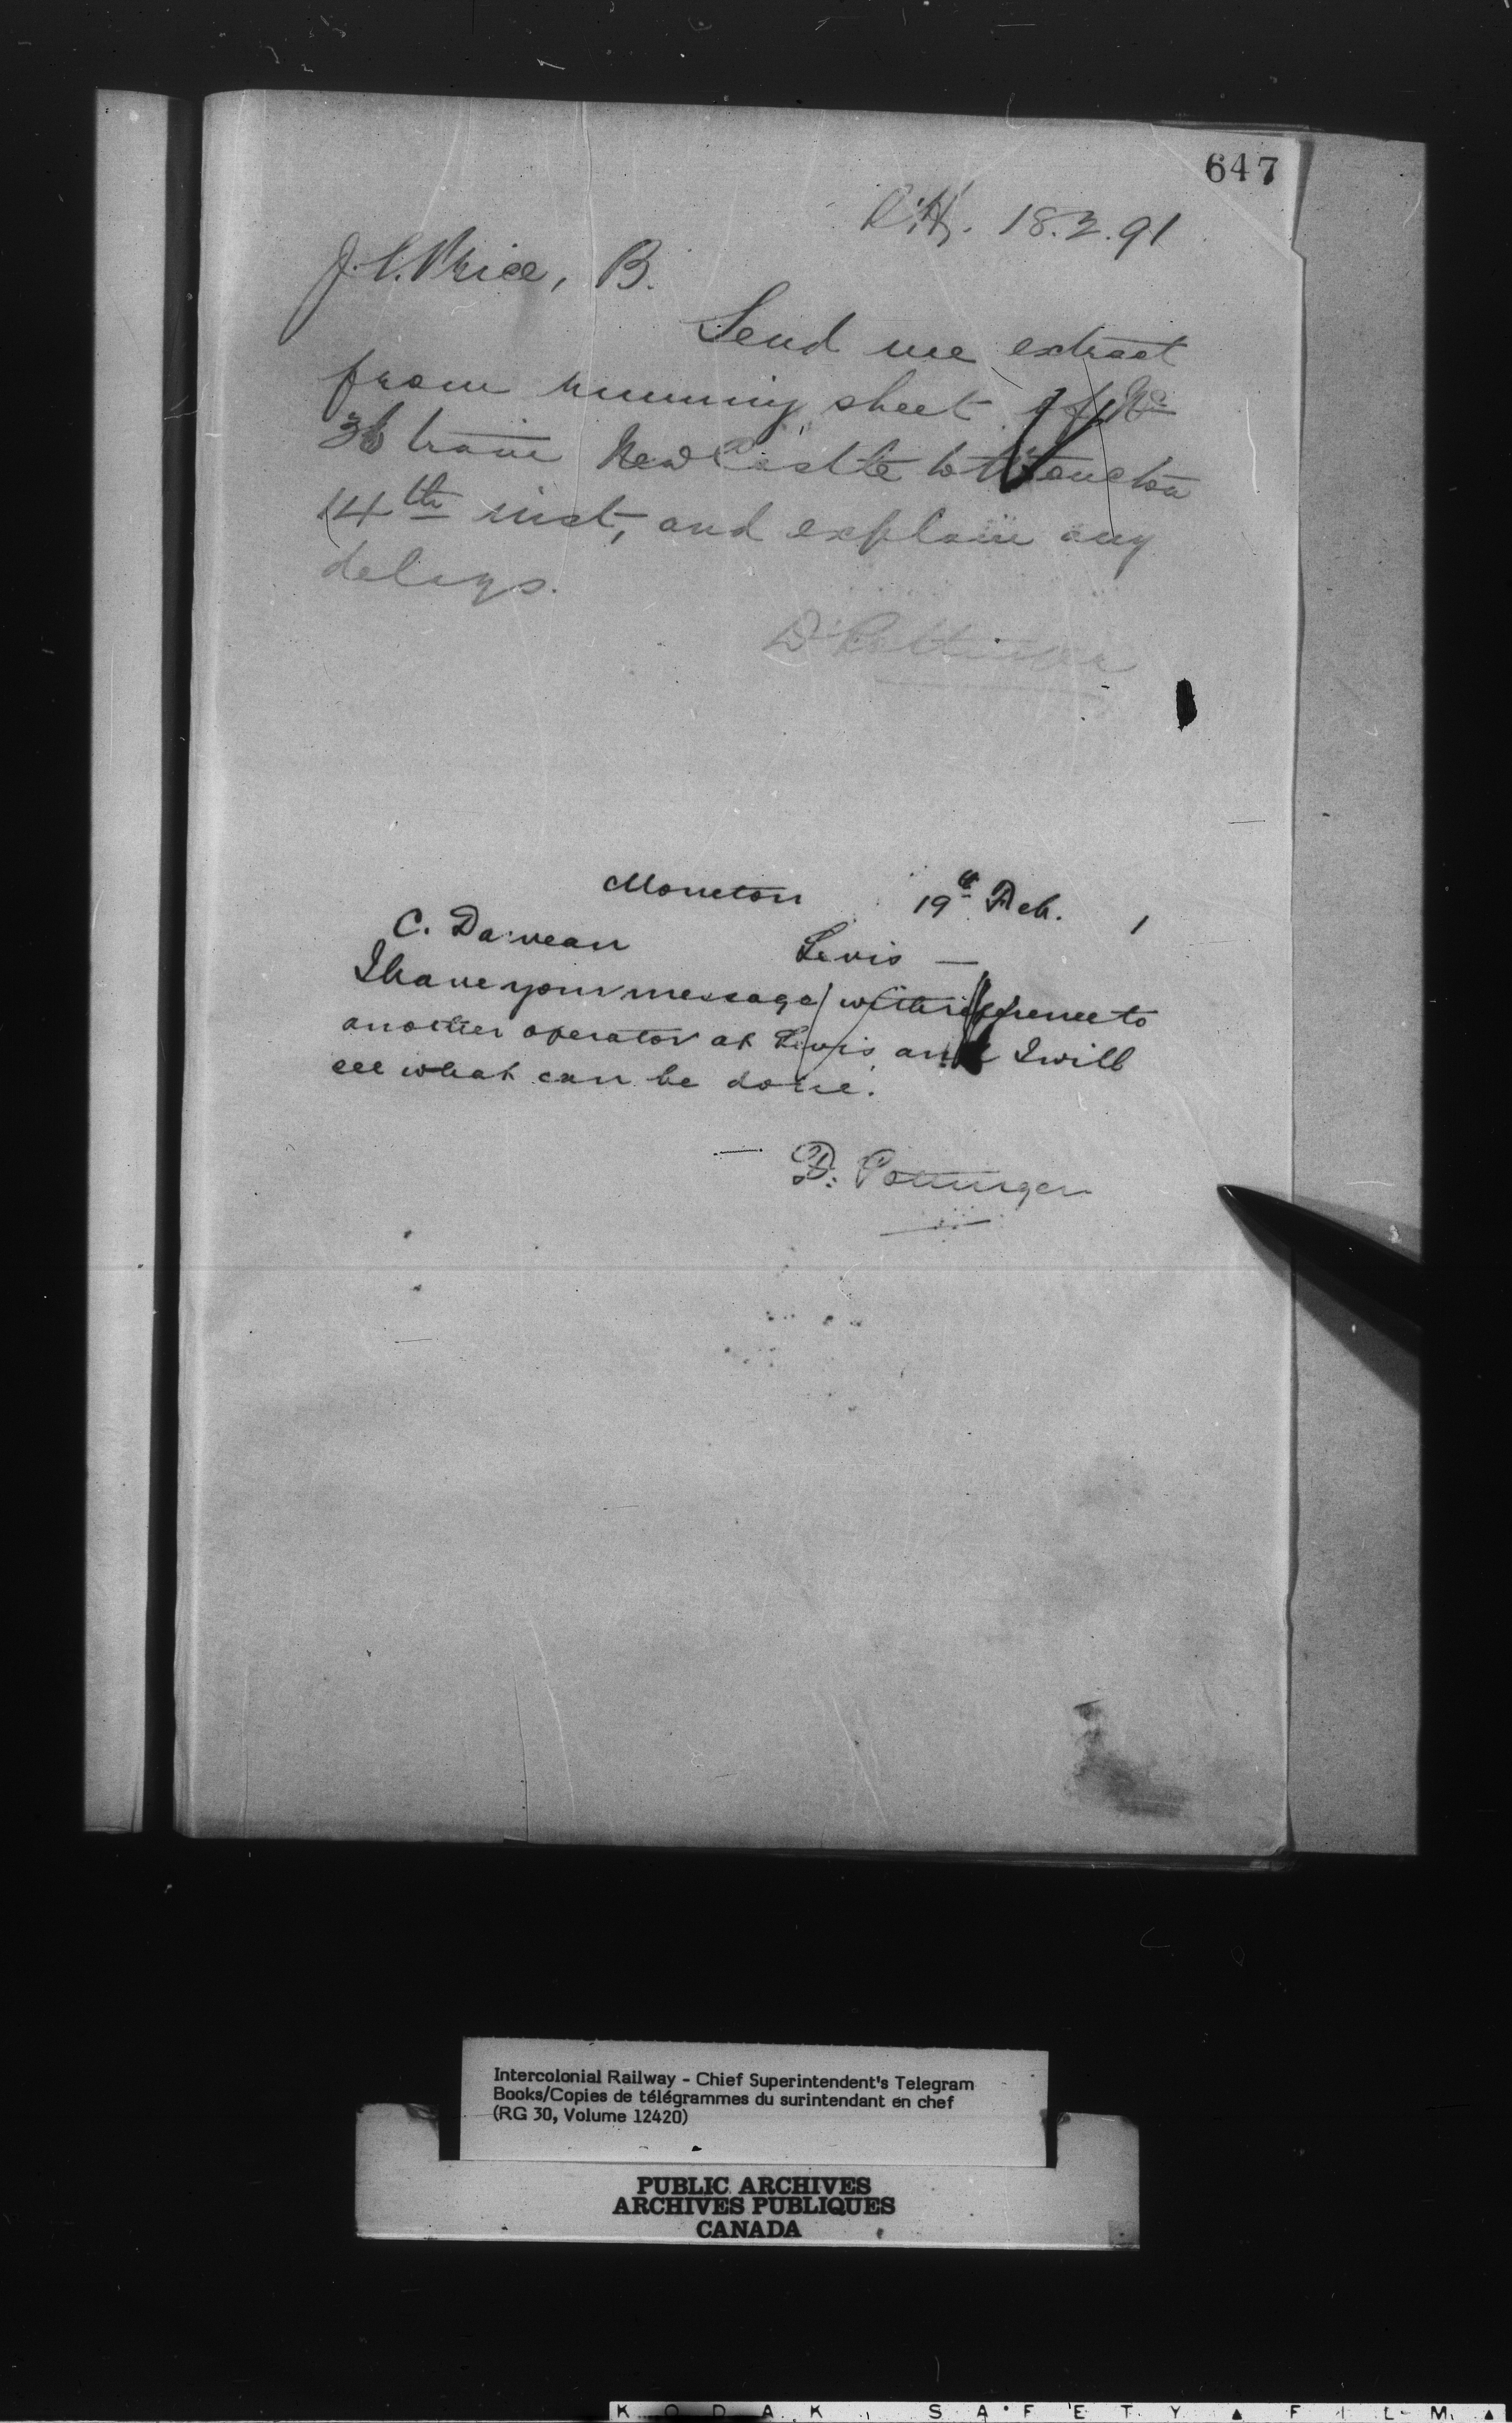 647
18.2.91
J. C. Price, B.
Send me extract
from running sheet of No
36 train New Castle to Moncton
14th inst, and explain any
delays.
D Pottinger
Moncton 19th Feb. 1
C. Daiveau Levis —
I have your message with reference to
another operator at Levis and I will
see what can be done.
— D. Pottinger
Intercolonial Railway - Chief Superintendent's Telegram
Books/Copies de télégrammes du surintendant en chef
(RG 30, Volume 12420)
PUBLIC ARCHIVES
ARCHIVES PUBLIQUES
CANADA
KODAK SAFETY ▲ FILM ▲